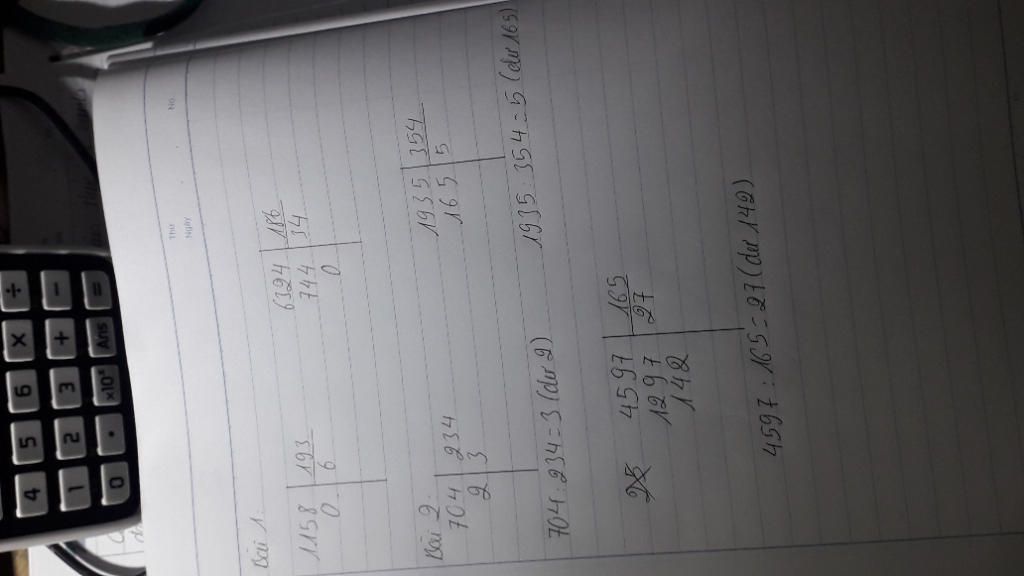 Thứ
Ngày
No.
Bài 1:
1158 193
0 6
6324 186
744 34
0
Bài 2:
704 234
2 3
704 : 234 = 3 (dư 2)
1935 354
165 5
1935 : 354 = 5 (dư 165)
4597 165
1297 27
142
4597 : 165 = 27 (dư 142)
÷
− =
× + Ans
6 3 ×10ˣ
5 2 •
4 1 0